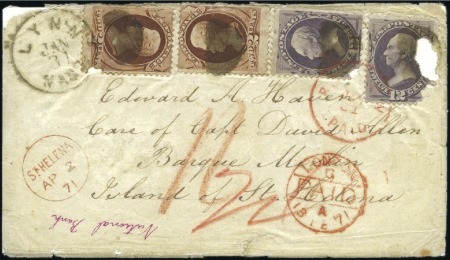 LYNN
JAN
31
MASS
Edward A. Haven
Care of Capt David Allen
Barque Merlin
Island of St. Helena
ST HELENA
AP 2
71
PAID
LONDON
71
National Bank